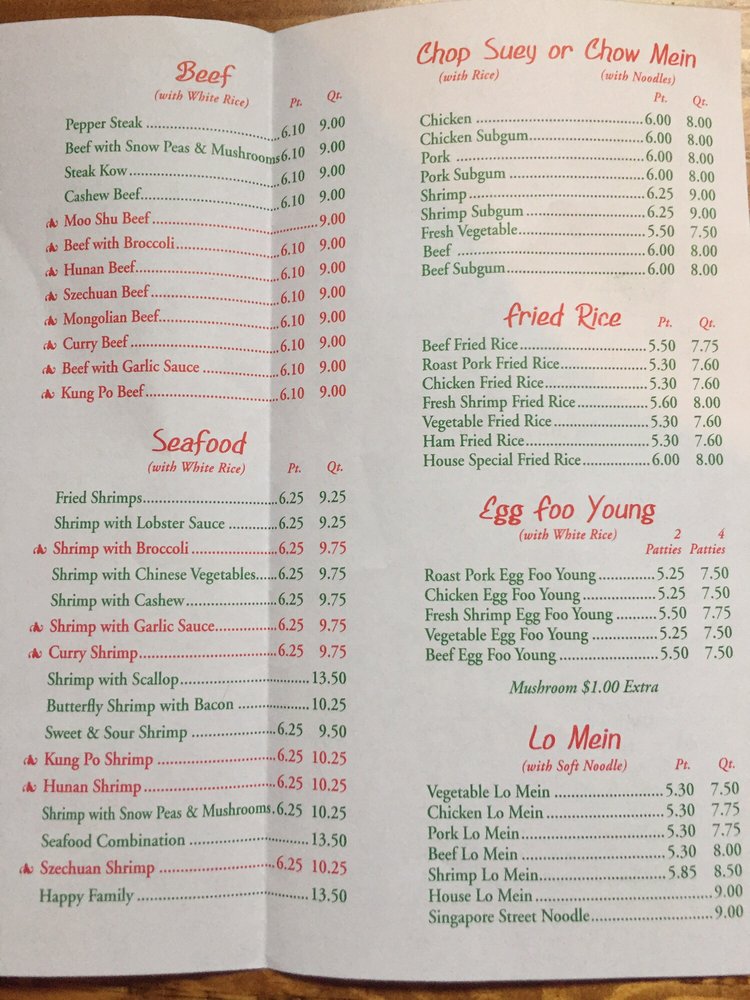 Beef
(with White Rice) Pt. Qt.
Pepper Steak 6.10 9.00
Beef with Snow Peas & Mushrooms 6.10 9.00
Steak Kow 6.10 9.00
Cashew Beef 6.10 9.00
Moo Shu Beef 9.00
Beef with Broccoli 6.10 9.00
Hunan Beef 6.10 9.00
Szechuan Beef 6.10 9.00
Mongolian Beef 6.10 9.00
Curry Beef 6.10 9.00
Beef with Garlic Sauce 6.10 9.00
Kung Po Beef 6.10 9.00
Seafood
(with White Rice) Pt. Qt.
Fried Shrimps 6.25 9.25
Shrimp with Lobster Sauce 6.25 9.25
Shrimp with Broccoli 6.25 9.75
Shrimp with Chinese Vegetables 6.25 9.75
Shrimp with Cashew 6.25 9.75
Shrimp with Garlic Sauce 6.25 9.75
Curry Shrimp 6.25 9.75
Shrimp with Scallop 13.50
Butterfly Shrimp with Bacon 10.25
Sweet & Sour Shrimp 6.25 9.50
Kung Po Shrimp 6.25 10.25
Hunan Shrimp 6.25 10.25
Shrimp with Snow Peas & Mushrooms 6.25 10.25
Seafood Combination 13.50
Szechuan Shrimp 6.25 10.25
Happy Family 13.50
Chop Suey or Chow Mein
(with Rice) (with Noodles)
Pt. Qt.
Chicken 6.00 8.00
Chicken Subgum 6.00 8.00
Pork 6.00 8.00
Pork Subgum 6.00 8.00
Shrimp 6.25 9.00
Shrimp Subgum 6.25 9.00
Fresh Vegetable 5.50 7.50
Beef 6.00 8.00
Beef Subgum 6.00 8.00
Fried Rice Pt. Qt.
Beef Fried Rice 5.50 7.75
Roast Pork Fried Rice 5.30 7.60
Chicken Fried Rice 5.30 7.60
Fresh Shrimp Fried Rice 5.60 8.00
Vegetable Fried Rice 5.30 7.60
Ham Fried Rice 5.30 7.60
House Special Fried Rice 6.00 8.00
Egg Foo Young
(with White Rice) 2 4
Patties Patties
Roast Pork Egg Foo Young 5.25 7.50
Chicken Egg Foo Young 5.25 7.50
Fresh Shrimp Egg Foo Young 5.50 7.75
Vegetable Egg Foo Young 5.25 7.50
Beef Egg Foo Young 5.50 7.50
Mushroom $1.00 Extra
Lo Mein
(with Soft Noodle) Pt. Qt.
Vegetable Lo Mein 5.30 7.50
Chicken Lo Mein 5.30 7.75
Pork Lo Mein 5.30 7.75
Beef Lo Mein 5.30 8.00
Shrimp Lo Mein 5.85 8.50
House Lo Mein 9.00
Singapore Street Noodle 9.00